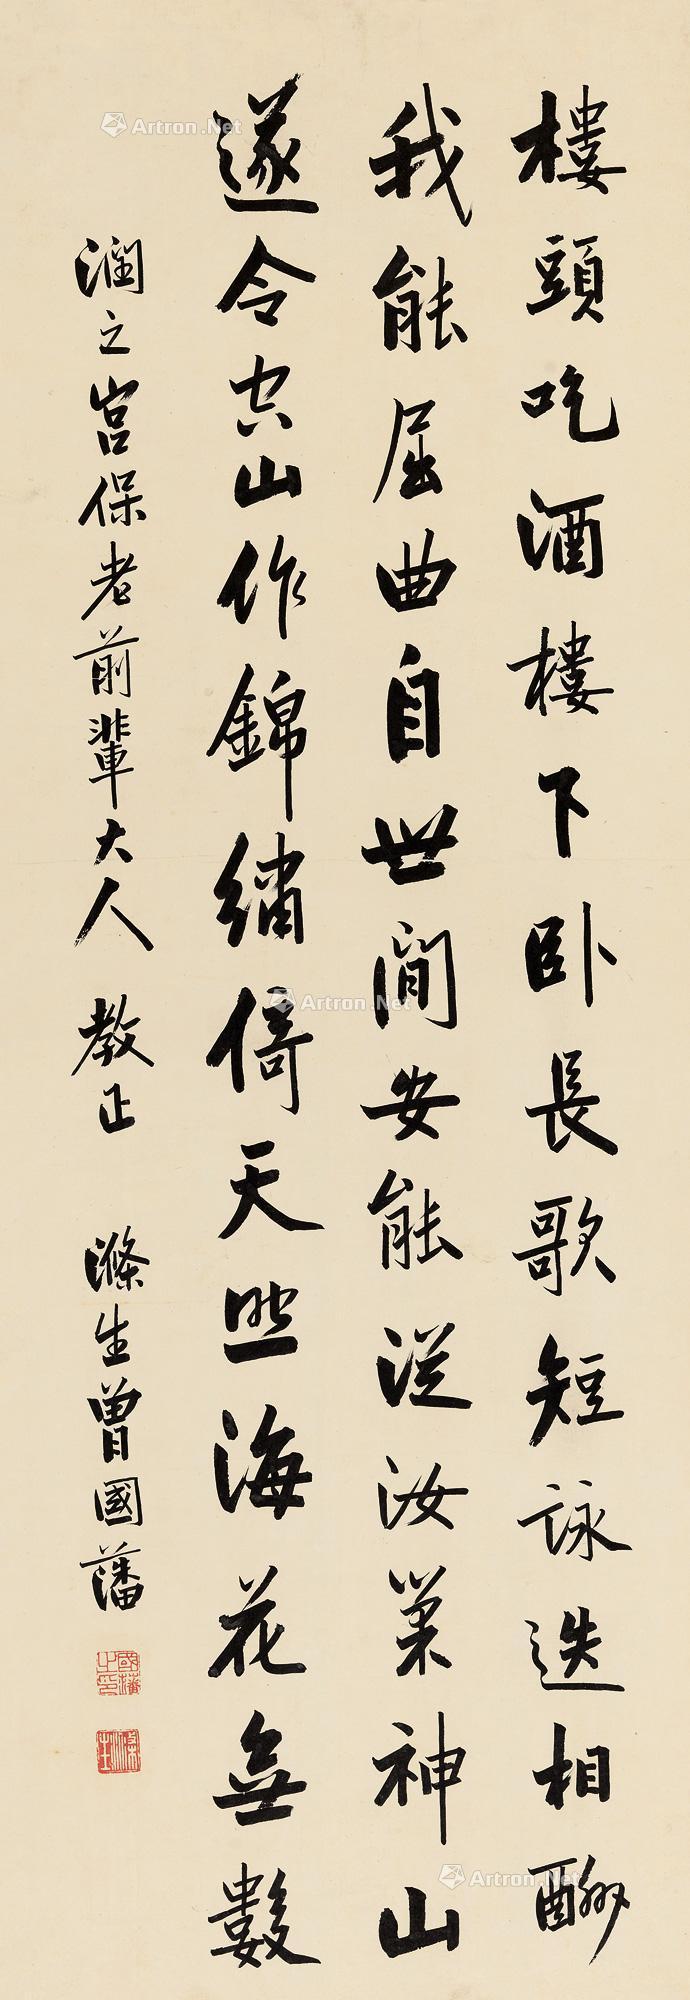 樓頭吃酒樓下卧長歌短詠迭相酬
我能屈曲自世閒安能從汝巢神山
遂令空山作錦繡倚天照海花無數
潤之宮保老前輩大人 教正 滌生曾國藩
國藩之印
滌生
Artron.Net
Artron.Net
Artron.Net
Artron.Net